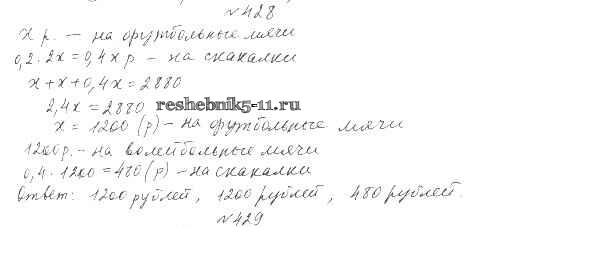 №428
x р. — на футбольные мячи
0,2 · 2x = 0,4x р — на скакалки
x + x + 0,4x = 2880
2,4x = 2880
reshebnik5-11.ru
x = 1200 (р) — на футбольные мячи
1200 р. — на волейбольные мячи
0,4 · 1200 = 480 (р) — на скакалки
Ответ: 1200 рублей, 1200 рублей, 480 рублей.
№429